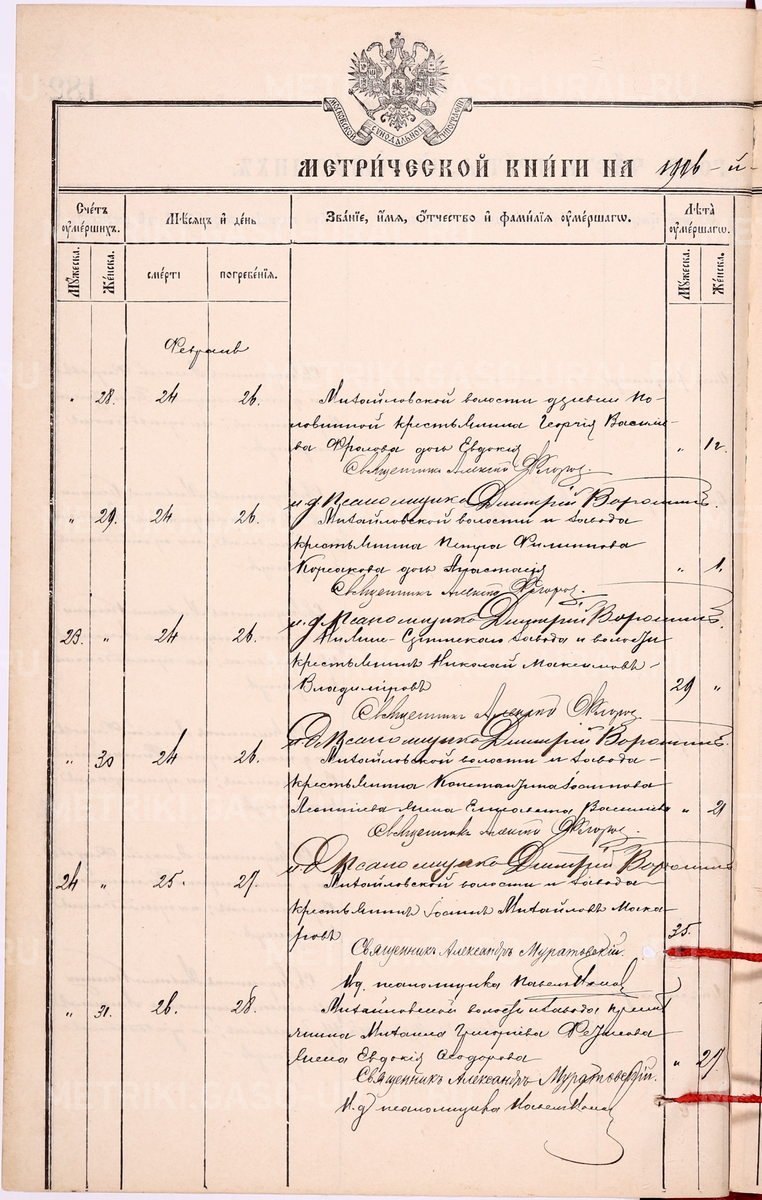 МОСКОВСКОЙ СѴНОДАЛЬНОЙ ТИПОГРАФІИ
МЕТРИ́ЧЕСКОЙ КНИ́ГИ НА 1916-й-
Счетъ ᲂумершихъ. Мѣсяцъ и день Званіе, имя, отчество и фамилія ᲂумершагѡ. Лѣта ᲂумершагѡ.
Мужеска. Женска. смерти погребенія. Мужеска. Женска.
Февраль
" 28. 24 26. Михайловской волости деревни По-
ловинной крестьянина Георгія Василье-
ва Фролова дочь Евдокія " 1 г.
Священникъ Алексій
и.д. Псаломщика Дмитрій Воронинъ.
" 29. 24 26. Михайловской волости и завода
крестьянина Петра Филиппова
Корсакова дочь Анастасія " 1.
Священникъ Алексій
и.д. Псаломщика Дмитрій Воронинъ.
23. " 24 26. Нижне-Сергинскаго завода и волости
крестьянинъ Николай Максимовъ
Владиміровъ 29 "
Священникъ Алексій
и.д. Псаломщика Дмитрій Воронинъ.
" 30 24 26. Михайловской волости и завода
крестьянина Константина Іоаннова
Леонтіева жена Елисавета Васильева " 21
Священникъ Алексій
и.д. Псаломщика Дмитрій Воронинъ
24 " 25. 27. Михайловской волости и завода
крестьянинъ Іоаннъ Михайловъ Мака-
ровъ 35.
Священникъ Александръ Муратовскій.
И.д. псаломщика Павелъ
" 31. 26. 28. Михайловской волости и завода кресть-
янина Михаила Григорьева
жена Евдокія Ѳеодорова " 27.
Священникъ Александръ Муратовскій.
И.д. псаломщика Павелъ
METRIKI.GASO-URAL.RU